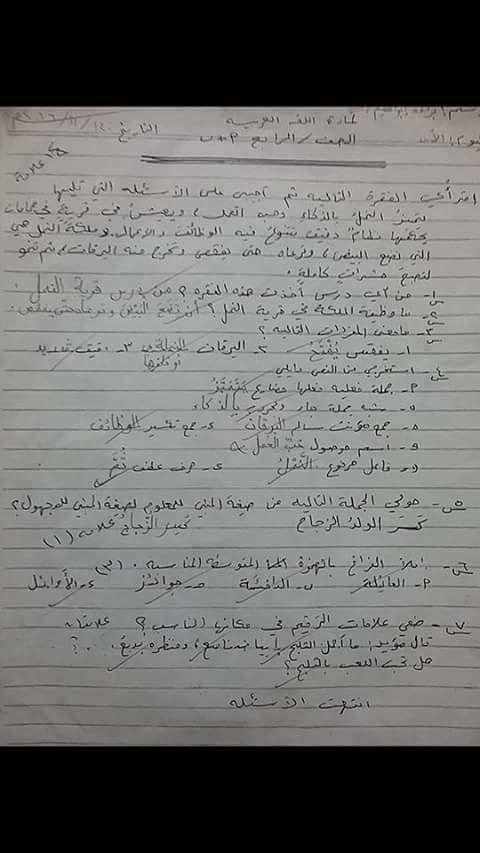 لمادة اللغة العربية
اليوم: الأحد الصف/الرابع التاريخ ٢٠١٦/١١/
علامة
اقرأي الفقرة التالية ثم أجيبي على الأسئلة التي تليها
يتميز النمل بالذكاء وحب العمل، ويعيش في قرية في جماعات
يحكمها نظام دقيق تتنوع فيه الوظائف والأعمال وملكة النمل هي
التي تضع البيض، وترعاه حتى يفقس وتخرج منه اليرقات، ثم تنمو
لتصبح حشرات كاملة.
س١- من أي درس أخذت هذه الفقرة؟ من درس قرية النمل.
س٢- ما وظيفة الملكة في قرية النمل؟ أن تضع البيض وترعاه حتى يفقس.
س٣- ما معنى المفردات التالية؟
١- يفقس يُفْتَحُ ٢- اليرقات ٣- دقيق
س٤- استخرجي من النص مايلي
٢- جملة فعلية فعلها مضارع يَتَمَيَّزُ
ب- شبه جملة جار ومجرور بالذكاء
ج- جمع مؤنث سالم اليرقات د- جمع تكسير الوظائف
و- اسم موصول
فاعل مرفوع النَّمْلُ حرف عطف ثُمَّ
س٥- حولي الجملة التالية من صيغة المبني للمعلوم لصيغة المبني للمجهول؟
كَسَرَ الولدُ الزجاجَ كُسِرَ الزُّجاجُ علامة (١)
س٦- املأ الفراغ بالهمزة المتوسطة المناسبة. (٣)
٢- العائلة ب- الدافئة ج- جوائز د- الأوائل
س٧- ضعي علامات الترقيم في مكانها المناسب؟ علامتان
قال مؤيد: ما أجمل الثلج! بياضه ناصع، ومنظره بديع. ؟
هل تحب اللعب بالثلج؟
انتهت الأسئلة